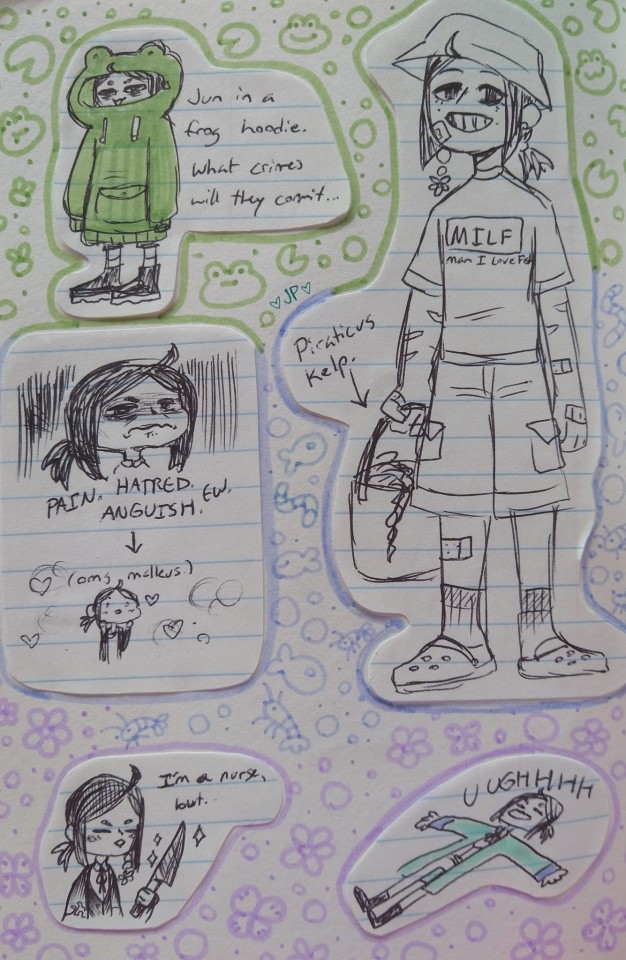 Jun in a
frog hoodie.
What crimes
will they commit...
MILF
man I Love Fe
♡JP♡
Piraticus
Kelp.
PAIN. HATRED. EW.
ANGUISH.
(omg malleus!)
I'm a nurse,
but..
UUGHHHH